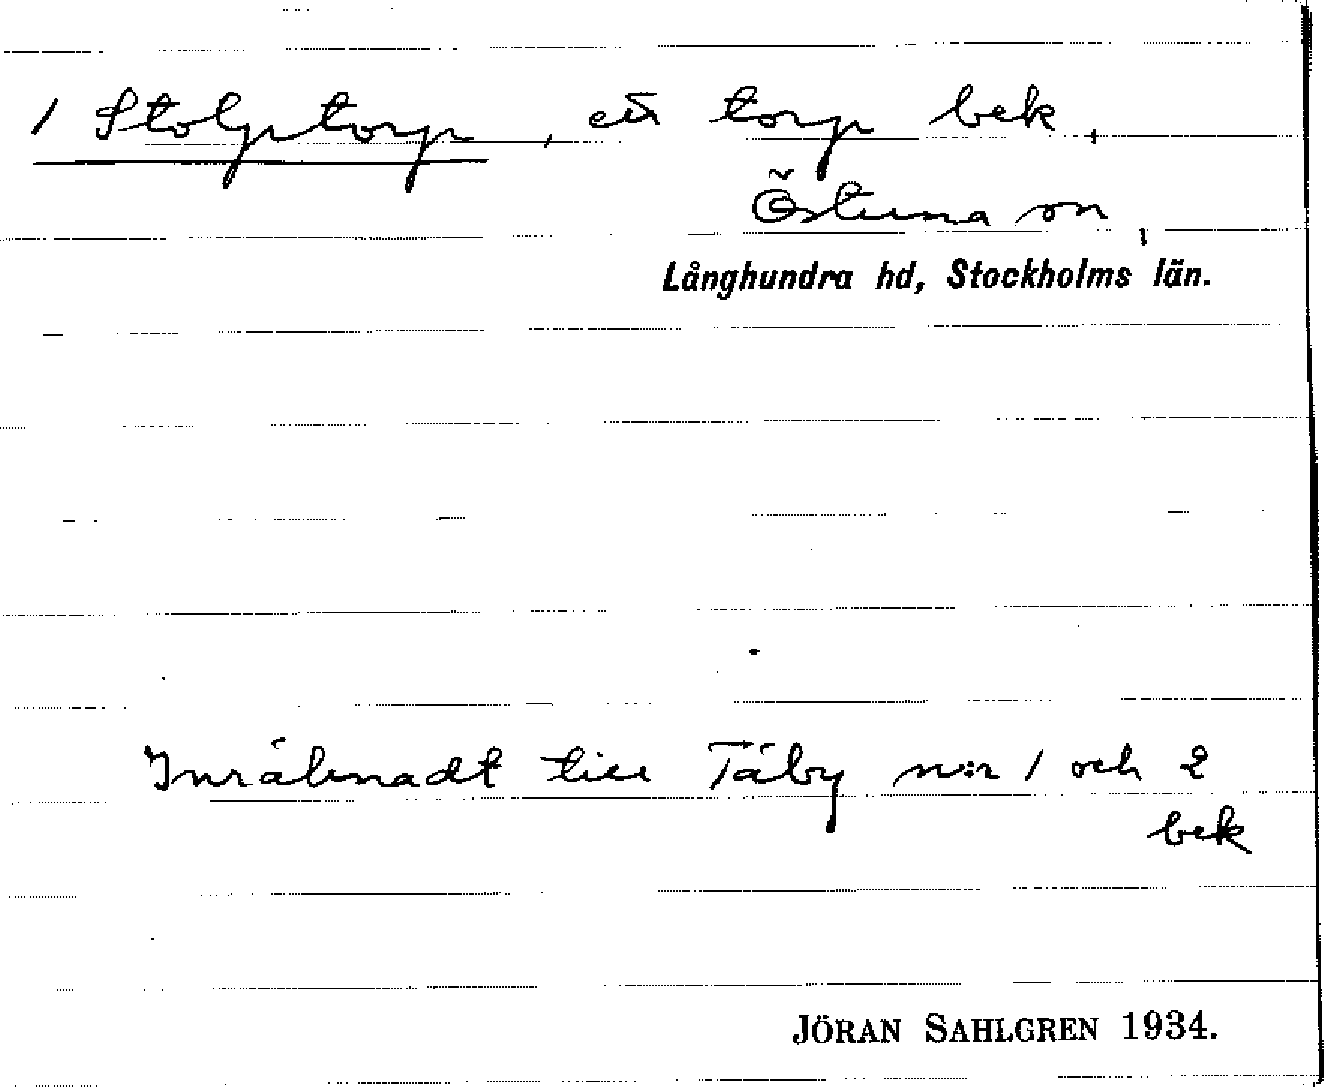 1 Stolptorp, ett torp bek,
Östuna sn,
Långhundra hd, Stockholms län.
Inräknadt till Täby n:r 1 och 2
bek
JÖRAN SAHLGREN 1934.